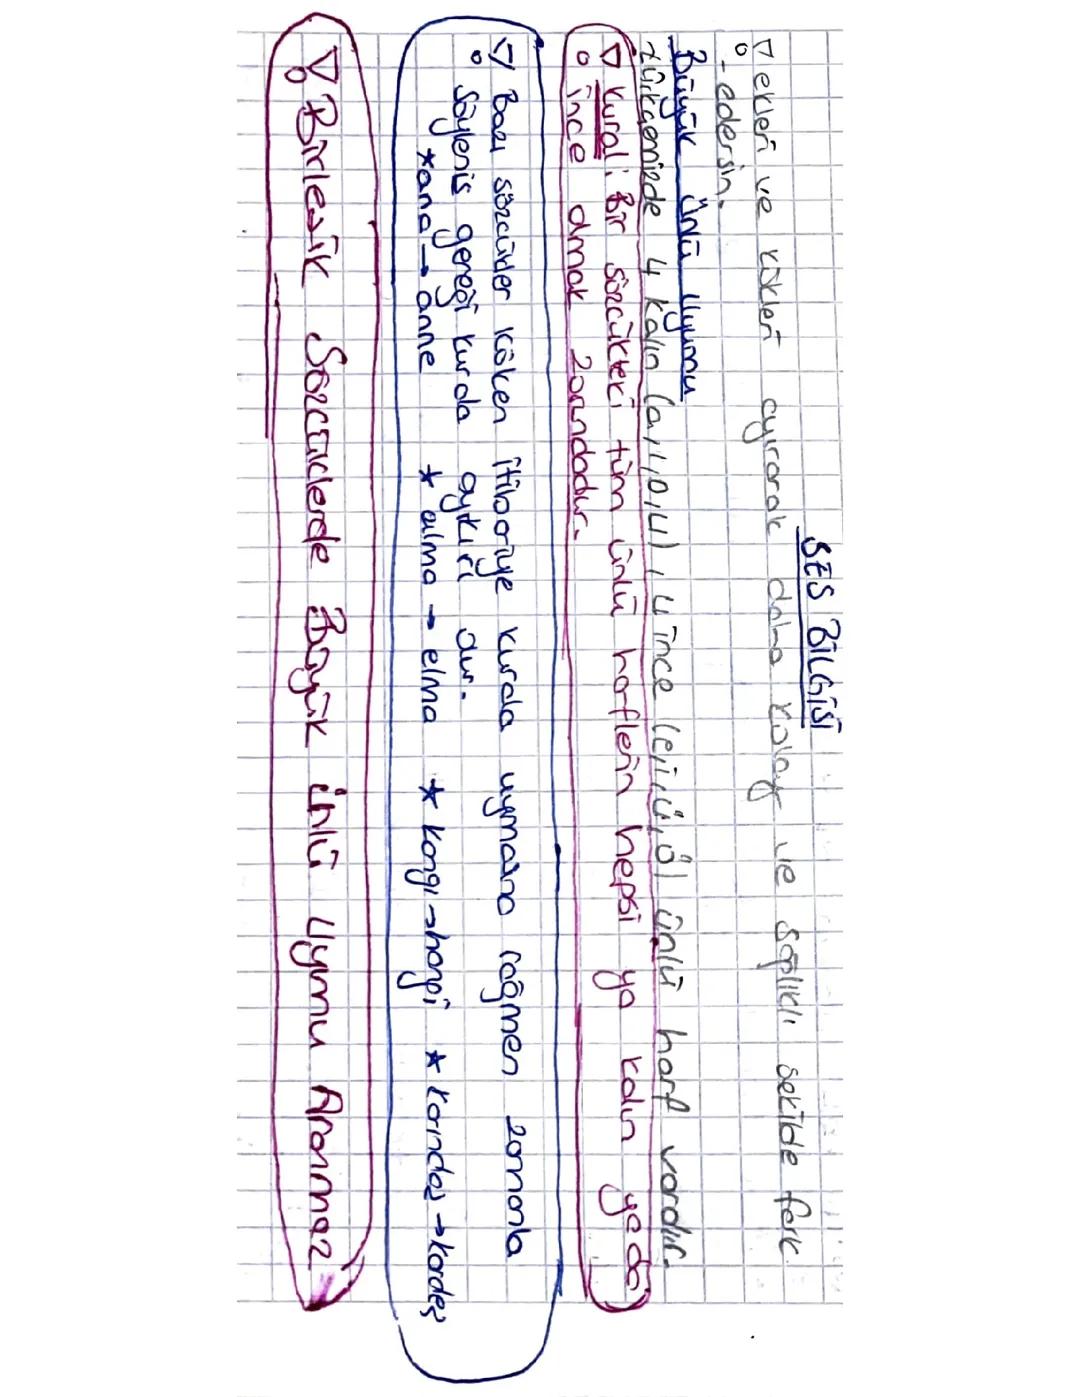 SES BİLGİSİ
ekleri ve kökleri ayırarak daha kolay ve sağlıklı şekilde fark
-edersin.
Büyük Ünlü Uyumu
Türkçemizde 4 kalın (a,ı,o,u), 4 ince (e,i,ü,ö) ünlü harf vardır.
Kural: Bir sözcükteki tüm ünlü harflerin hepsi ya kalın ya da
ince olmak zorundadır.
Bazı sözcükler köken itibariye kurala uymasına rağmen zamanla
söyleniş gereği kurala aykırı dır.
*ana → anne * alma → elma * kangı → hangi * karındaş → kardeş
Birleşik Sözcüklerde Büyük ünlü Uyumu Aranmaz